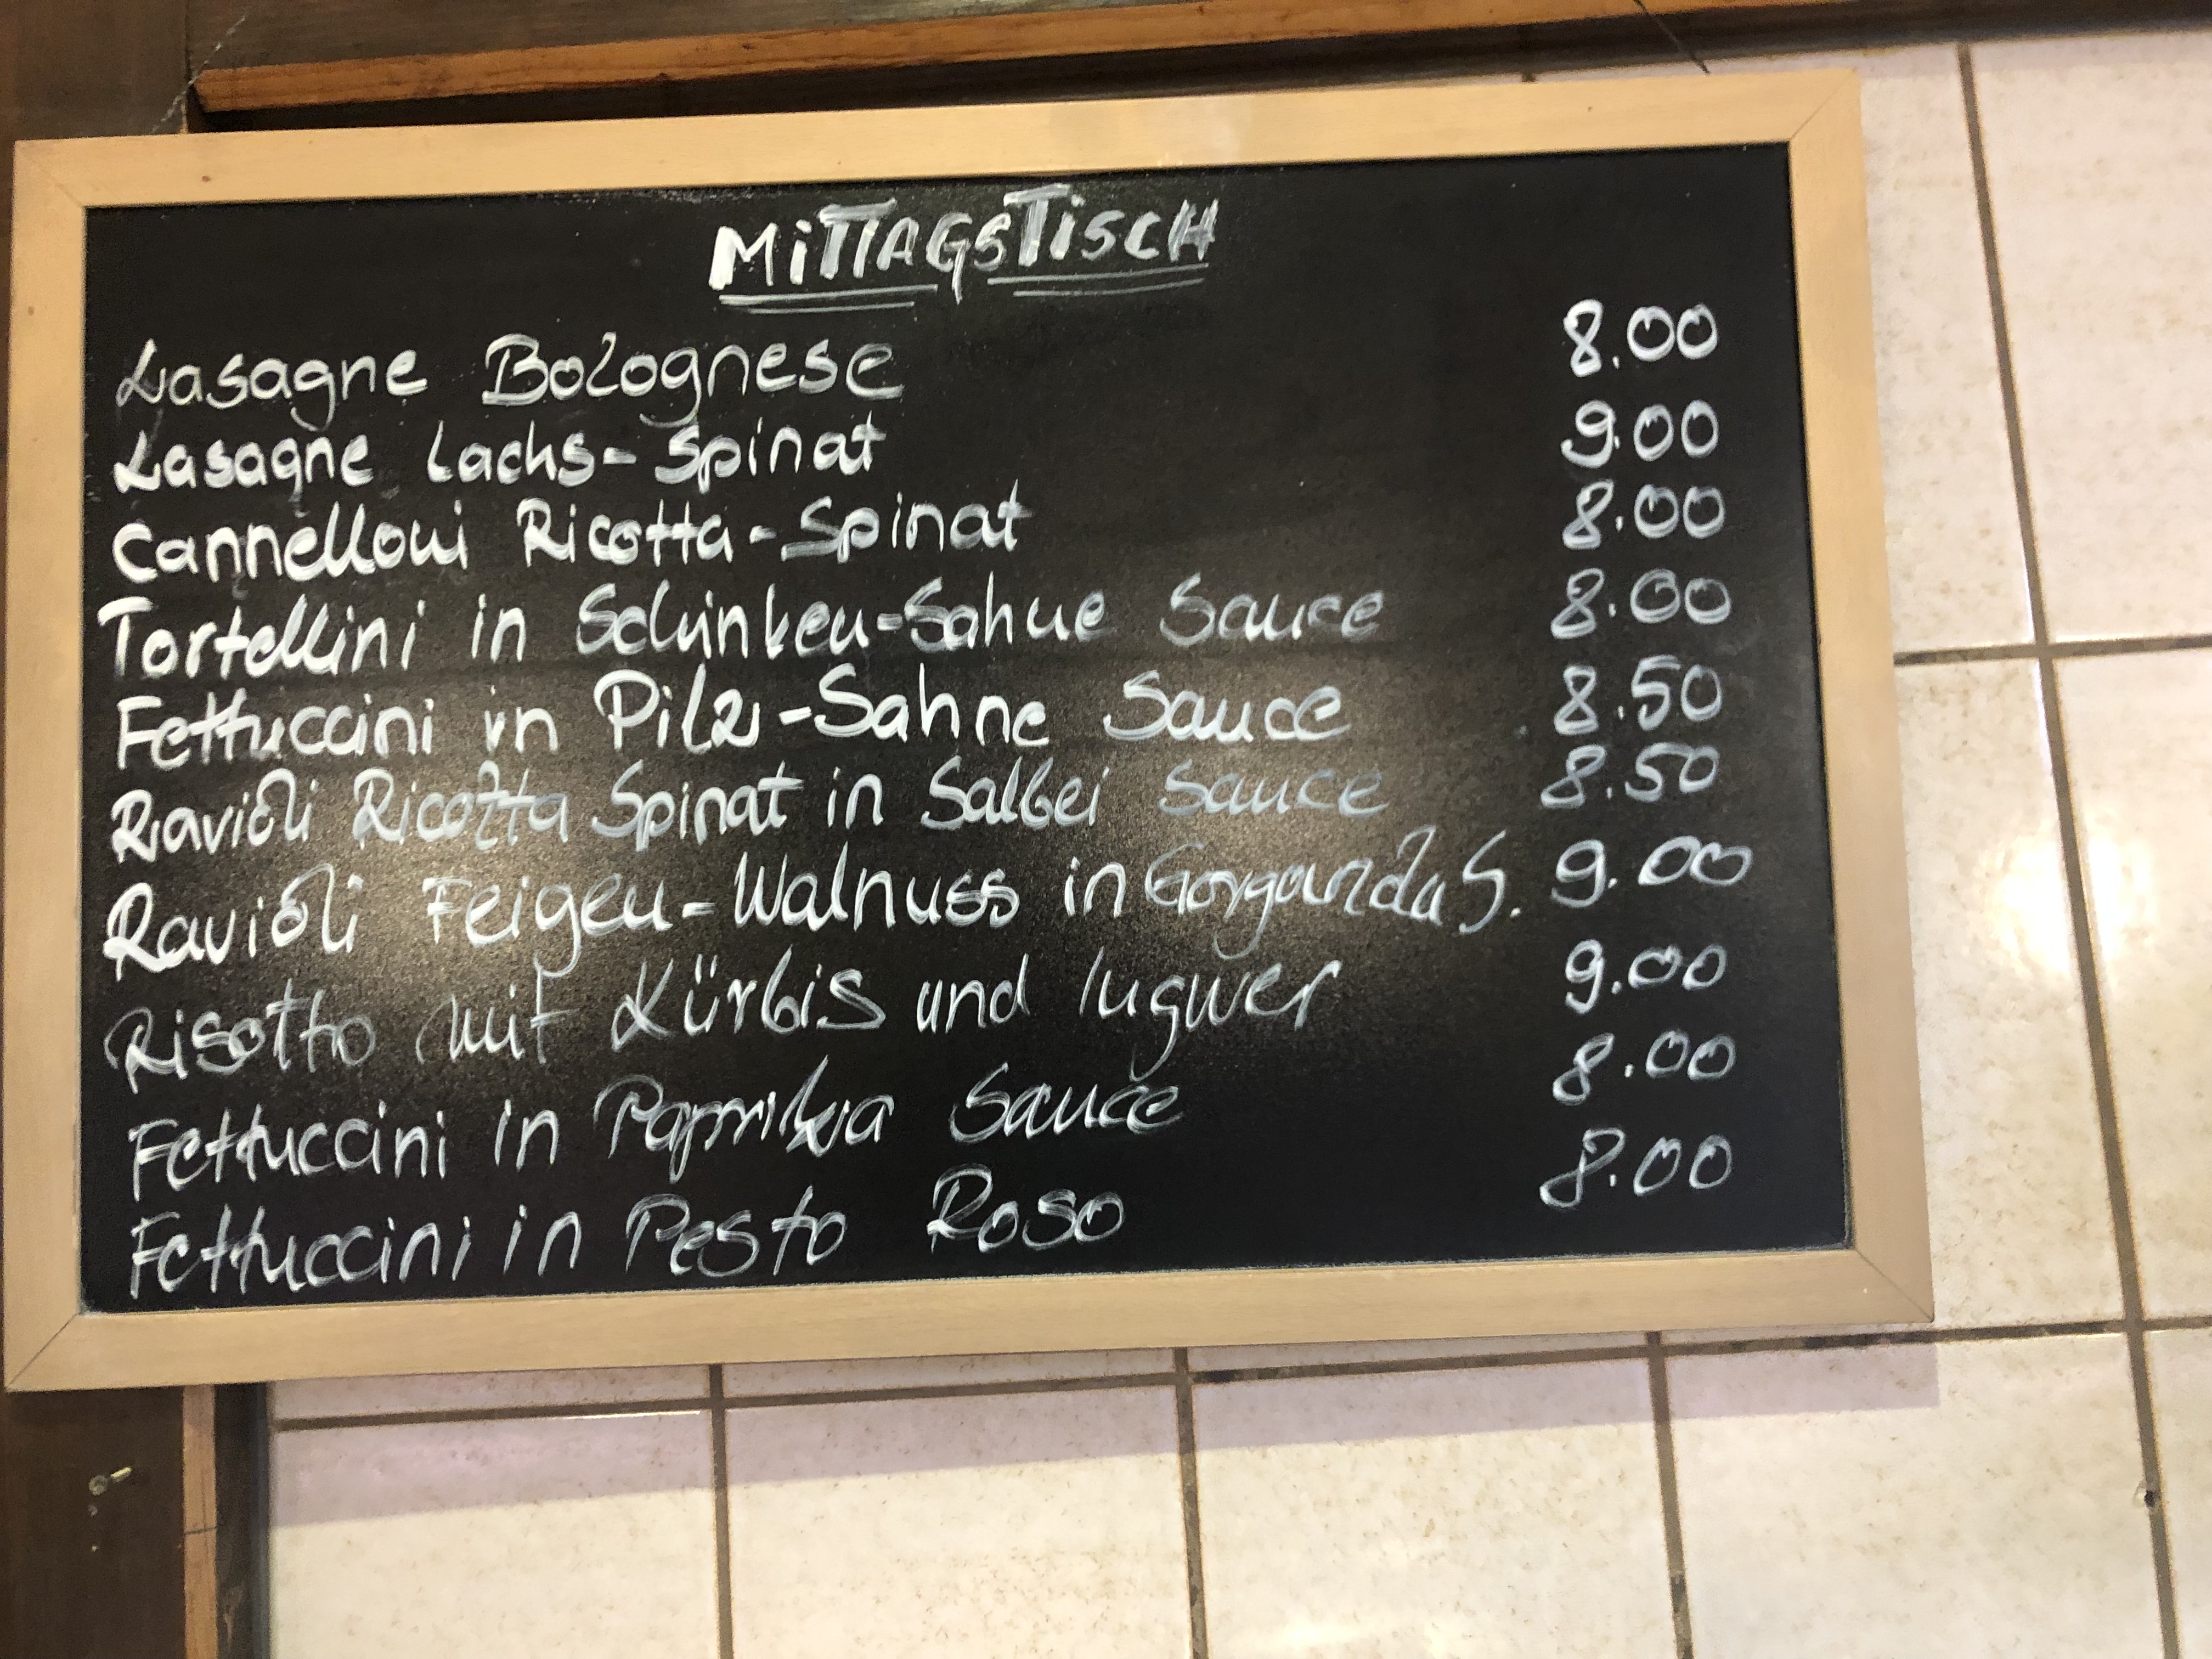 MITTAGSTISCH
Lasagne Bolognese 8.00
Lasagne Lachs-Spinat 9.00
Cannelloni Ricotta-Spinat 8.00
Tortellini in Schinken-Sahne Sauce 8.00
Fettuccini in Pilz-Sahne Sauce 8.50
Ravioli Ricotta Spinat in Salbei Sauce 8.50
Ravioli Feigen-Walnuss in Gorgonzola S. 9.00
Risotto mit Kürbis und Ingwer 9.00
Fettuccini in Paprika Sauce 8.00
Fettuccini in Pesto Roso 8.00